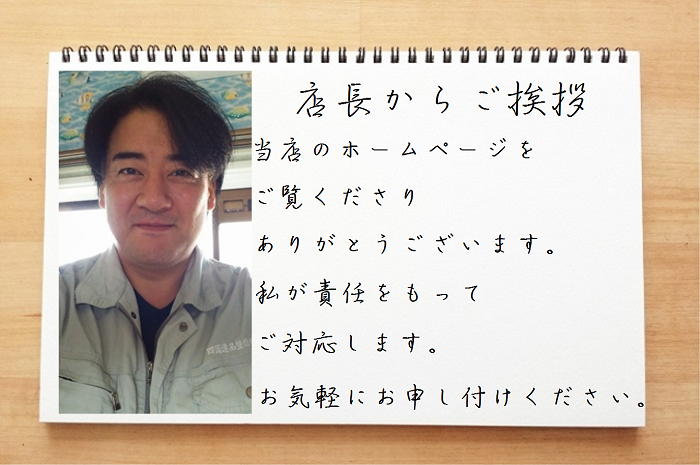 店長からご挨拶
当店のホームページを
ご覧くださり
ありがとうございます。
私が責任をもって
ご対応します。
お気軽にお申し付けください。